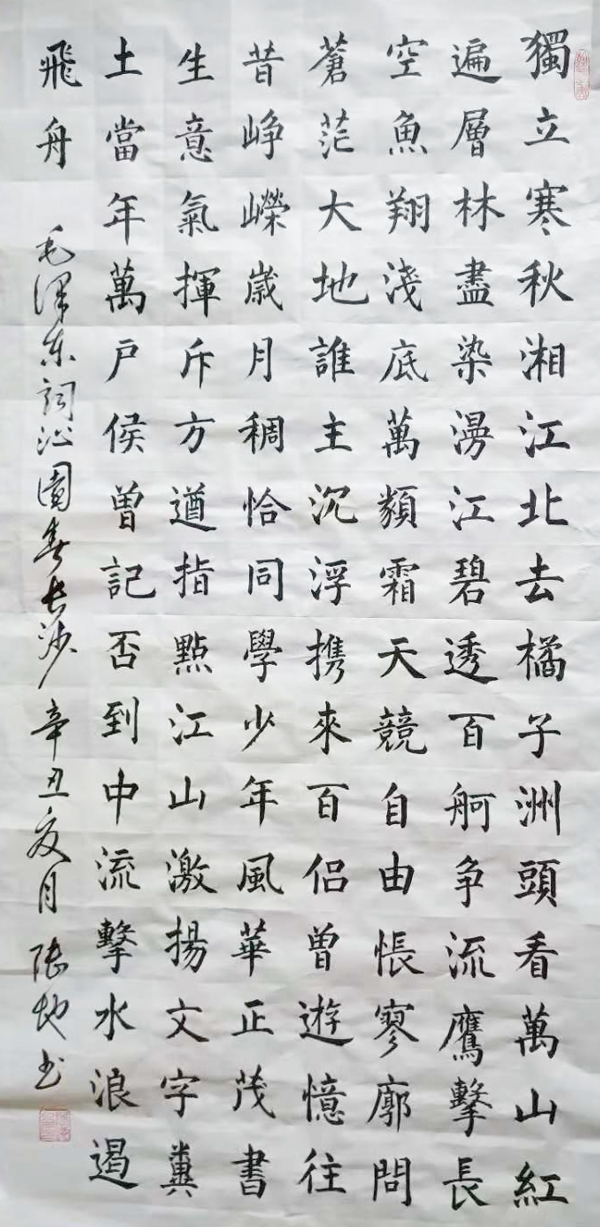 獨立寒秋湘江北去橘子洲頭看萬山紅
遍層林盡染漫江碧透百舸争流鷹擊長
空魚翔淺底萬類霜天競自由悵寥廓問
蒼茫大地誰主沉浮携來百侣曾遊憶往
昔峥嶸歲月稠恰同學少年風華正茂書
生意氣揮斥方遒指點江山激揚文字糞
土當年萬户侯曾記否到中流擊水浪遏
飛舟 毛泽东词沁園春长沙 辛丑夏月 地书